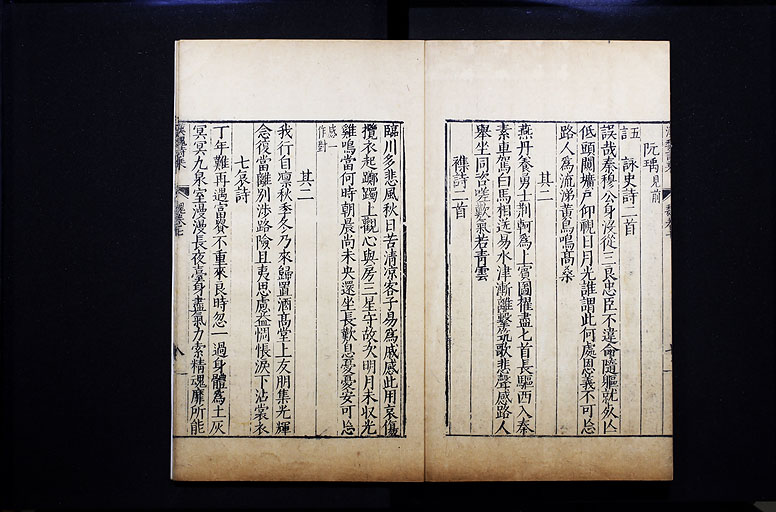 阮瑀 見前
五言 詠史詩二首
誤哉秦穆公身沒從三良忠臣不違命隨軀就死亡
低頭闚壙戶仰視日月光誰謂此何處恩義不可忘
路人爲流涕黃鳥鳴高桑
其二
燕丹養勇士荊軻爲上賓圖擢盡匕首長驅西入秦
素車駕白馬相送易水津漸離擊筑歌悲聲感路人
舉坐同咨嗟歎氣若青雲
襍詩二首
臨川多悲風秋日苦清凉客子易爲戚感此用哀傷
攬衣起躑躅上觀心與房三星守故次明月未収光
雞鳴當何時朝晨尚未央還坐長歎息憂憂安可忘
感一作對
其二
我行自凛秋季冬乃來歸置酒高堂上友朋集光輝
念復當離別涉路險且夷思慮益惆悵淚下沾裳衣
七哀詩
丁年難再遇富貴不重來良時忽一過身體爲土灰
冥冥九泉室漫漫長夜臺身盡氣力索精魂靡所能